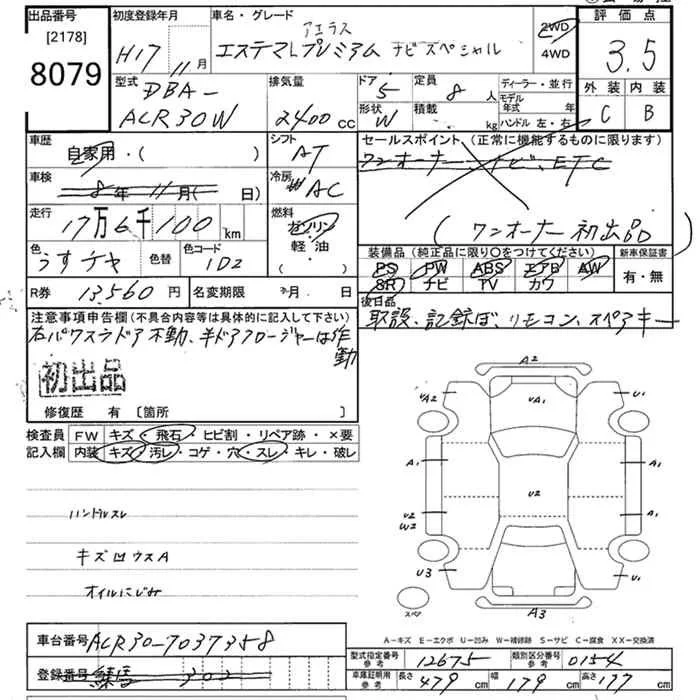 出品番号
[2178]
8079
初度登録年月
H17年11月
車名・グレード
アエラス
エスティマLプレミアム ナビスペシャル
2WD
4WD
評価点
3.5
外装 内装
C B
型式
DBA-
ACR30W
排気量
2400cc
ドア
5
形状
W
定員
8人
積載
kg
ディーラー・並行
モデル年式 年
ハンドル 左・右
車歴
自家用・( )
シフト
AT
車検
8年11月( 日)
冷房
AC
走行
17万6千100km
燃料
ガソリン
軽・油
( )
色
うすチャ
色替
色コード
1D2
R券
13,560円
名変期限
月 日
セールスポイント、(正常に機能するものに限ります)
ワンオーナー ナビ、ETC
(ワンオーナー 初出品)
装備品(純正品に限り〇をつけてください)
PS PW ABS エアB AW
SR ナビ TV カワ
新車保証書
有・無
後日品
取説、記録ぼ、リモコン、スペアキー
注意事項申告欄(不具合内容等は具体的に記入して下さい)
右パワスラドア不動、半ドアクロージャーは作動
初出品
修復歴 有 [箇所 ]
検査員記入欄
FW キズ・飛石・ヒビ割・リペア跡・×要
内装 キズ・汚レ・コゲ・穴・スレ・キレ・破レ
ハンドルスレ
キズ凹ウスA
オイルにじみ
A2
UA2
UA1
U1
A1
A1
U2
U2
W2
A1
U3
U1
スペア
A3
A-キズ E-エクボ U-凹み W-補修跡 S-サビ C-腐食 XX-交換済
車台番号 ACR30-7037358
登録番号 練馬 302
型式指定番号 参考 12675
類別区分番号 参考 0154
車庫証明用 参考
長さ 479cm 幅 179cm 高さ 177cm